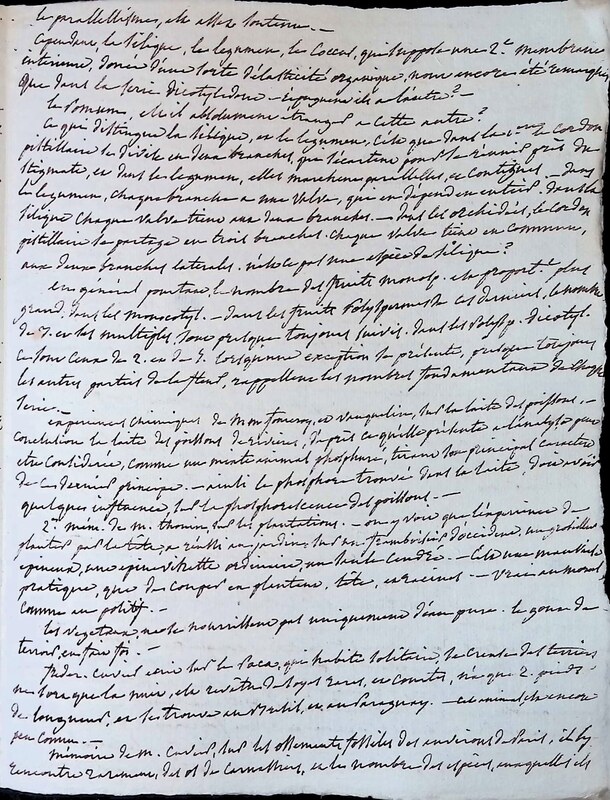 le parallélisme, elle assez soutenue. —
Cependant, la silique, le legumen, le Coccus, qui suppose une 2.e membrane
intérieure, douée d'une sorte d'élasticité organique, n'ont encore été remarqués
que dans la serie dicotyledone —
le Pomum, est il absolument étranger a cette autre?
Ce qui distingue la silique, et le legumen, C'est que dans la 1ere le cordon
pistillaire se divise en deux branches, qui s'écartent pour se réunir près du
stigmate, et dans le legumen, elles marchent parallelles, et contigues. — Dans
le legumen, chaque branche a une valve, qui en dépend en entier, dans la
silique chaque valve tient aux deux branches. — dans les orchidées, le Cordon
pistillaire se partage en trois branches. chaque valve tient en commun,
aux deux branches laterales. n'est ce pas une espèce de silique?
en général pourtant, le nombre des fruits monosp. est proport.t plus
grand dans les monocotyl. — dans les fruits Polyspermes de ces derniers, le nombre
de 3. et les multiples, sont presque toujours suivis. dans les Polysp. dicotyl.
ce sont ceux de 2. et de 5. lorsqu'une exception se présente, presque toujours
les autres parties de la fleur, rappellent les nombres fondamentaux de chaque
serie. —
expériences chimiques de M. Fourcroy, et Vauquelin, sur la laite des poissons. —
Conclusion la laite des poissons de rivières, d'après ce qu'elle présente a l'analyse peut
etre considérée, comme un mixte animal phosphuré, tirant son principal caractere
de ce dernier principe. — ainsi le phosphore trouvé dans la laite, doit avoir
quelque influence, sur la phosphorescence des poissons. —
2.e mém. de M. Thouin, sur les plantations. — on y voit que l'expérience de
planter par la tête, a réussi au jardin, sur un framboisier d'occident, un groseiller
epineux, une epine vinette ordinaire, un saule cendré. — C'est une mauvaise
pratique, que de couper en plantant, tête, et racines. — Vrai au moral
comme au positif. —
les vegetaux, ne se nourrissent pas uniquement d'eau pure. le gout de
terroir, en fait foi. —
freder. Cuvier écrit sur le Paca, qui habite solitaire, se creuse des terriers
ne sort que la nuit, est revêtu de soyes rares, et courtes, n'a que 2. pieds
de longueur, et se trouve au Bresil, et au Paraguay. — cet animal, est encore
peu connu. —
mémoire de M. Cuvier, sur les ossements fossiles des environs de Paris, il y
rencontre rarement, des os de carnassiers, et le nombre des espèces, auxquelles ils